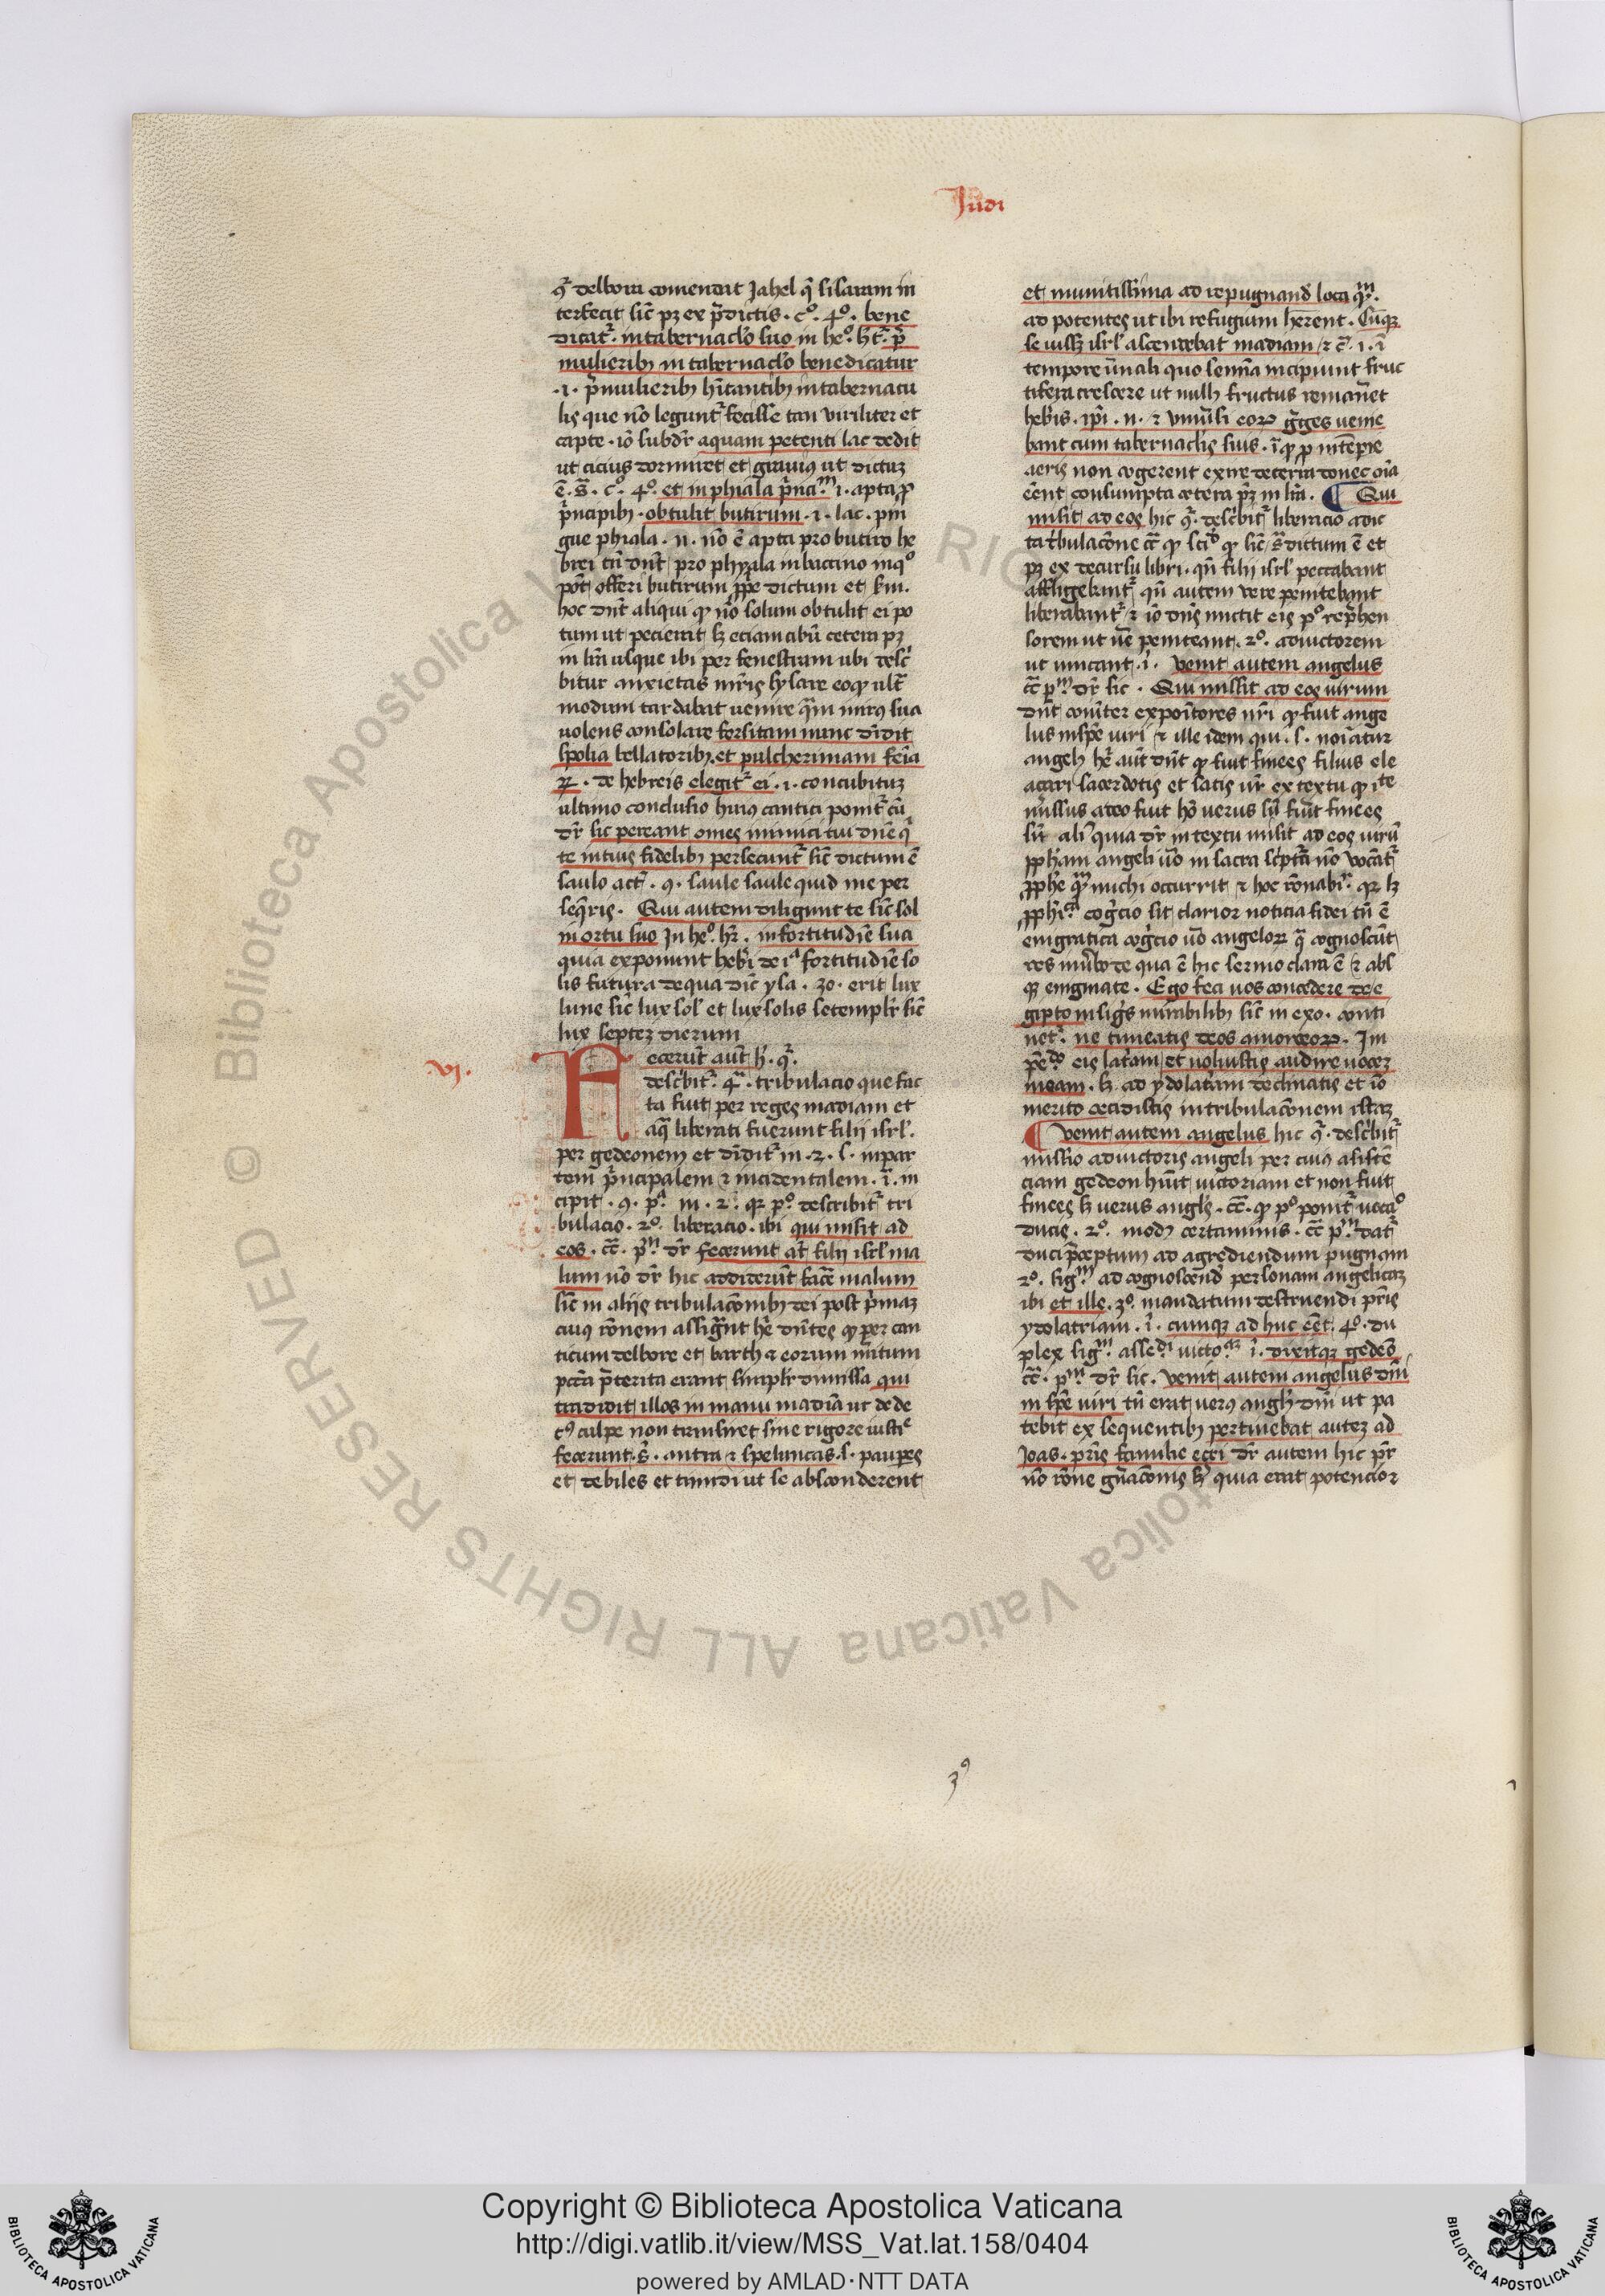 Judi
qͥ delbora comendat Jahel qͣ sisaram in
terfecit sic̄ pꝫ ex p̄dictis. c°. 4°. bene
dicatᷣ. in tabernaclo suo in he°. hr̄. p̄
mulieribꝫ in tabernaclo benedicatur
.i. p̄ mulieribꝫ hītantibꝫ in tabernacu
lis que nō leguntᷣ fecisse tan viriliter et
capte. iō subdr̄ aquam petenti lac dedit
ut cicius dormiret et grauiꝰ ut dictuꝫ
ē. s̄. c°. 4°. et in phiala p̄nciᵐ .i. apta ꝓ
p̄ncipibꝫ. obtulit butirum .i. lac. pin
gue phiala. n. nō ē apta pro butiro he
brei tn̄ dn̄t pro phyala in baccino in q°
pōt offeri butirum ꝓpe dictum et fm.
hoc dn̄t aliqui ꝙ nō solum obtulit ei po
tum ut pecierat sꝫ eciam cibū cetera pꝫ
in lr̄a usque ibi per fenestram ubi desc̄
bitur anxietas mr̄is sysare eo ꝙ ult̄
modum tardabat uenire quam nurꝰ sua
uolens consolare forsitam nunc diuidit
spolia bellatoribꝫ. et pulcherimam feīa
ꝝ. de hebreis elegitᷣ ei .i. concubituꝫ
ultimo conclusio huiꝰ cantici ponitᷣ cū
dr̄ sic pereant omēs inimici tui dn̄e qͥ
te in tuis fidelibꝫ persecuntᷣ sic̄ dictum ē
saulo act̄. 9. saule saule quid me per
seqr̄is. Qui autem diligunt te sic̄ sol
in ortu suo In he°. hr̄. in fortitudīe sua
quia exponunt hebr̄i de iᵃ fortitudīe so
lis futura de qua dic̄ ysa. 30. erit lux
lune sic̄ lux sol̄ et lux solis septemplr̄ sic̄
lux septeꝫ dierum
.vi.
Fecerūt aūt h̄. qͥ.
descbitᷣ. 4ᵃ. tribulacio que fac
ta fuit per reges madiam et
a qᵃ liberati fuerunt filij isrl̄.
per gedeonem et diuiditᷣ in .2. s. in par
tem p̄ncipalem ⁊ incidentalem .i. in
cipit. 9. pᵃ. in .2. qꝛ p°. describitᷣ tri
bulacio. 2°. liberacio. ibi qui misit ad
eos. cͣ. pᵐ. dr̄ fecerunt at̄ filij isrl̄ ma
lum nō dr̄ hic addiderūt facē malum
sic̄ in alijs tribulacōnibꝫ dei post p̄maꝫ
cuiꝰ rōnem assignāt he dn̄tes ꝙ per can
ticum delbore et barth ⁊ eorum
pccā p̄terita erant simplr̄ dimissa qui
tradidit illos in manu madiā ut de de
cꝰ culpe non transiret sine rigore iusti°
fecerunt. s̄. antra ⁊ speluncas .s. pauꝑes
et debiles et timidi ut se absconderent
et munitissima ad repugnand̄ loca qᵐ.
ad potentes ut ibi refugium herent. Cūqꝫ
seuissꝫ isrl̄ ascendebat madiam ⁊ c̄ .i. ī
tempore uernali quo semīa incipiunt fruc
tifera crescere ut nullꝰ fructus remanēt
hebr̄is. ip̄i. n. ⁊ vniuersi eoꝝ greges uenie
bant cum tabernaclis suis. ita ꝙ ꝓ intēꝑie
aeris non cogerent exire de terra donec oīa
eēnt consumpta cetera pꝫ in lr̄a. ¶ Qui
misit ad eos hic qͥ. descbitᷣ liberacio a dic
ta tribulacōne cͣ ꝙ sciᵈ ꝙ sic̄ s̄ dictum ē et
pꝫ ex decursu libri. qn̄ filij isrl̄ peccabant
affligebantᷣ qn̄ autem vere penitebant
liberabantᷣ ⁊ iō dn̄s mittit eis p° rep̄hen
sorem ut ue peniteant. 2°. adiutorem
ut uincant. i. venit autem angelus
cͣ pᵐ. dr̄ sic. Qui missit ad eos uirum
dn̄t coiter expoītores nr̄i ꝙ fuit ange
lus in spē uiri ⁊ ille idem qui .s. noīatur
angelꝰ he aūt dn̄t ꝙ fuit finees filius ele
açari sacerdotis et satis ur̄ ex textu ꝙ iᵗᵉ
missus a deo fuit ho verus siue fuit finees
siue aliꝰ quia dr̄ in textu misit ad eos uirū
ꝓphetam angeli uō in sacra scptᵃ nō vocātᷣ
ꝓphe qᵐ michi occurrit ⁊ hoc rōnabiᷣ. qꝛ sꝫ
ꝓphīᵃ cogc̄io sit clarior noticia fidei tn̄ ē
enigmatica cogc̄io uō angeloꝝ qᵃ cognoscūt
res in uerbo de qua ē hic sermo clara ē ⁊ abs
qꝫ enigmate. Ego feci uos concedere de e
gipto in sigis mirabilibꝫ sic̄ in exo. conti
netᷣ. ne timeatis deos amoreoꝝ. Im
peᵈᵒ eis latriam et noluistis audire uoceꝫ
meam. sꝫ ad ydolatriam declinatis et iō
merito cecidistis in tribulacōnem istaꝫ
¶ venit autem angelus hic qͥ. descbitᷣ
missio adiutoris angeli per cuiꝰ assistē
ciam gedeon huit uictoriam et non fuit
finees sꝫ verus angls̄. cͣ. ꝙ p° ponitᷣ uocaᵒ
ducis. 2°. modꝰ certaminis. cͣ pᵐ. datᷣ
duci p̄ceptum ad agrediendum pugnam
2°. sigᵐ ad cognoscend̄ personam angelicaꝫ
ibi et ille. 3°. mandatum destruendi pr̄is
ydolatriam. i. cumqꝫ ad huc eēt. 4°. du
plex sigᵐ. asseᵈⁱ uictoᵃᵉ i. dixitqꝫ gedeō
cͣ. pᵐ. dr̄ sic. venit autem angelus dn̄i
in spē uiri tn̄ erat uerꝰ anglꝰ dn̄i ut pa
tebit ex sequentibꝫ pertinebat auteꝫ ad
Joas. pr̄is familie eçri dr̄ autem hic pr̄
nō rōne gn̄acōnis sꝫ quia erat potencior
3ꝰ
© Biblioteca Apostolica Vaticana ALL RIGHTS RESERVED
Copyright © Biblioteca Apostolica Vaticana
http://digi.vatlib.it/view/MSS_Vat.lat.158/0404
powered by AMLAD·NTT DATA
BIBLIOTECA APOSTOLICA VATICANA
BIBLIOTECA APOSTOLICA VATICANA